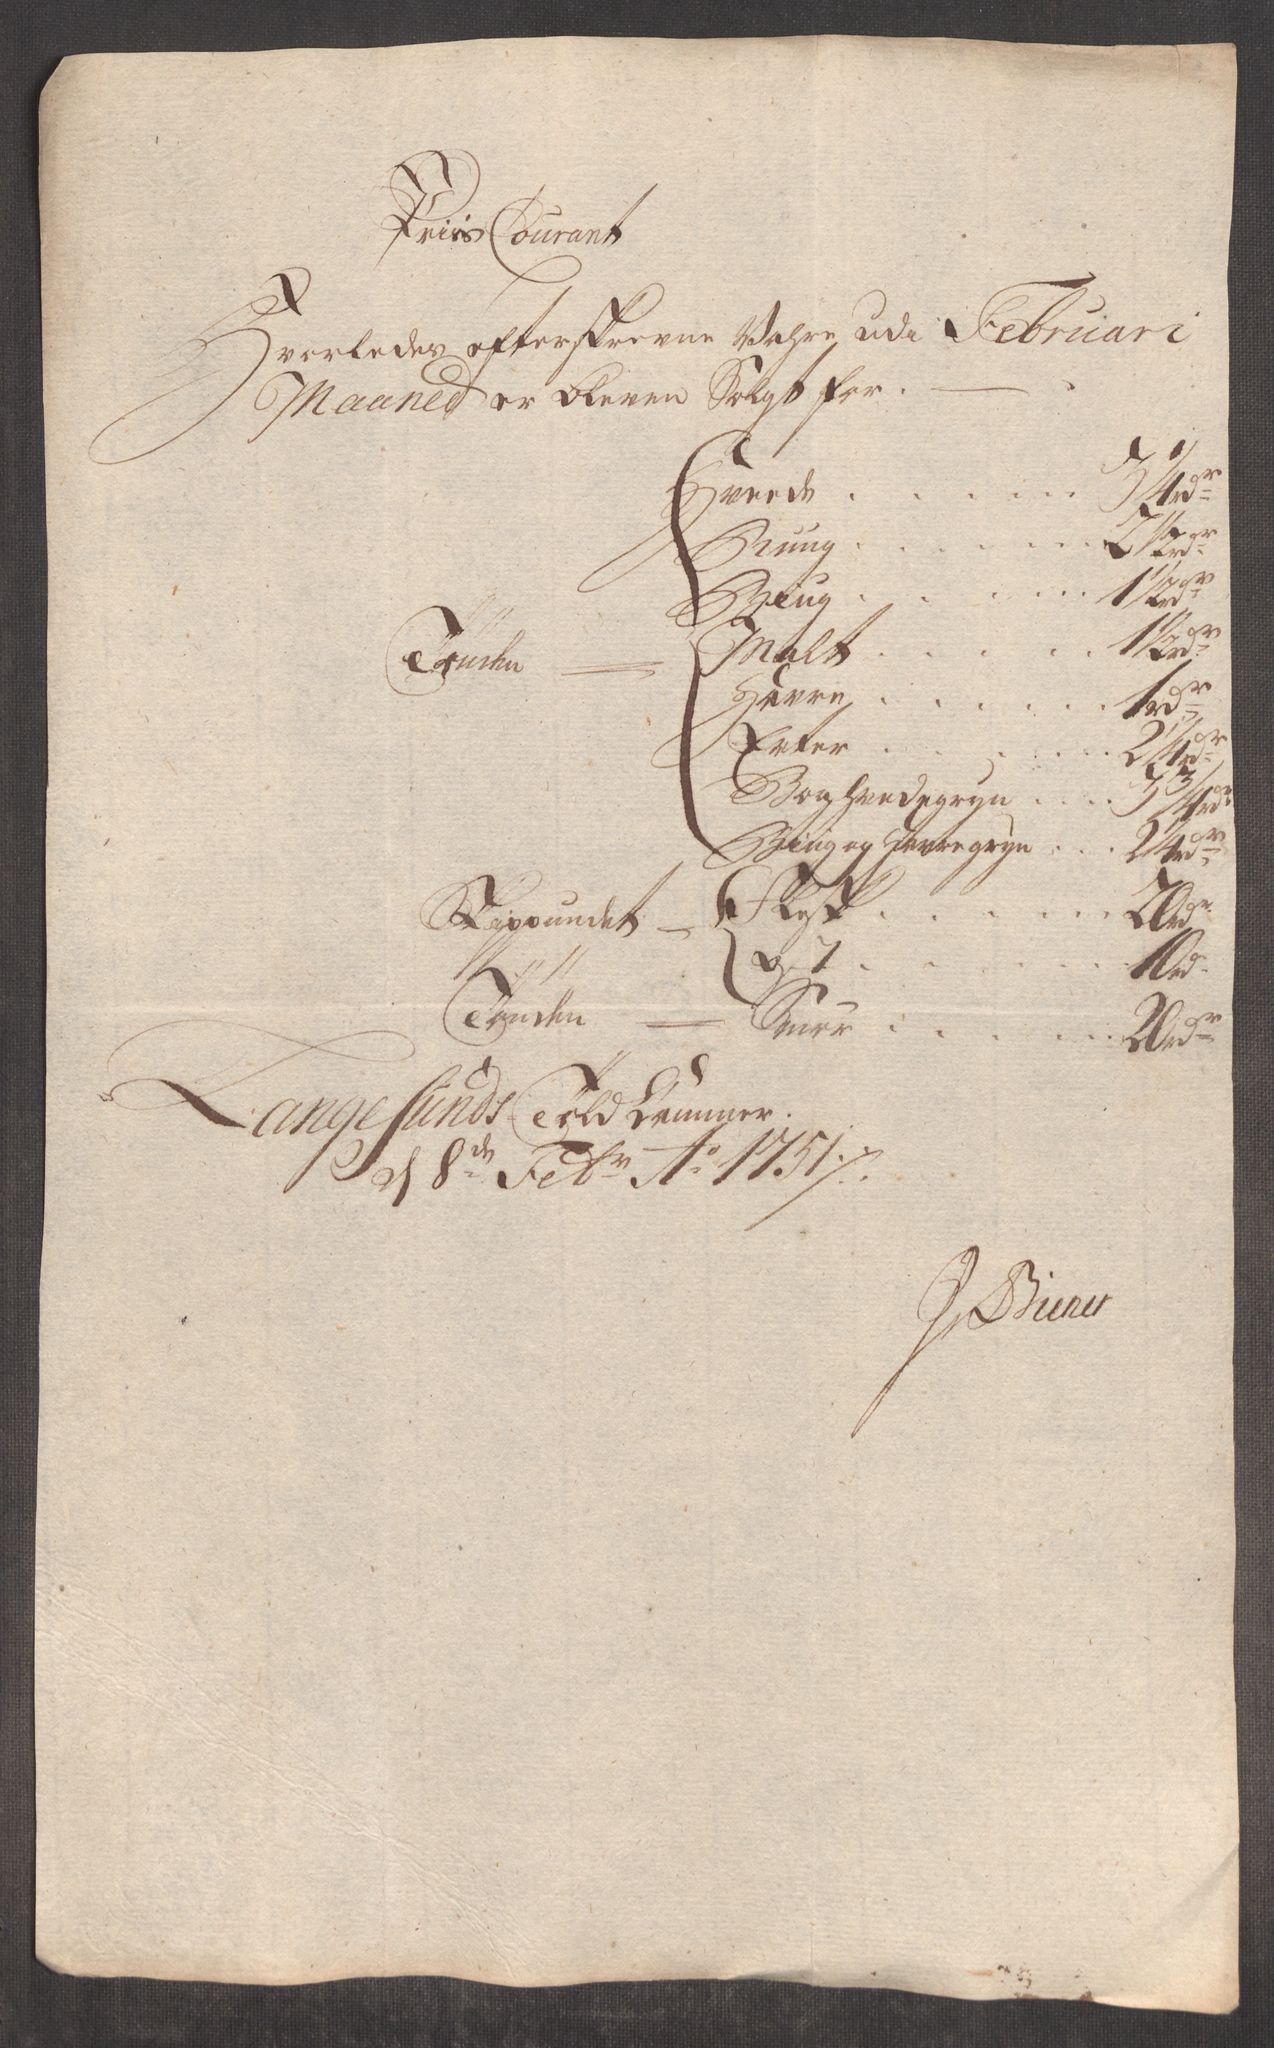 Priis Courant
Hvorledes efterskrevne Vahre udi Februari
Maaned er bleven Solgt for.
Hveede . . . . . 3 1/4 rdr
Rung . . . . . 2 1/2 rdr
Beug . . . . . 1 1/2 rdr
Tønden — Malt . . . . . 1 1/2 rdr
Havre . . . . . 1 rdr
Erter . . . . . 2 1/4 rdr
Boghvedegryn . . . . 3 3/4 rdr
Biug og Havregryn . . . 2 1/4 rdr
Skippundet — Flesk . . . . . 20 rdr
Ost . . . . . 10 rd
Tønden — Smør . . . . . 20 rdr
Langesunds Told Cammer.
d 8de Febr Ao 1751 ./.
J Biener